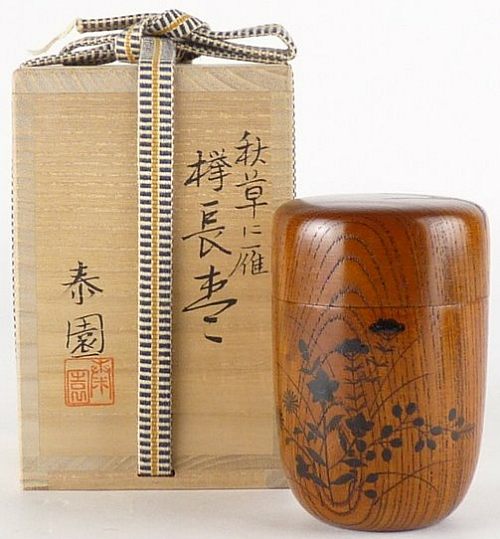 秋草に雁
欅長棗
泰園